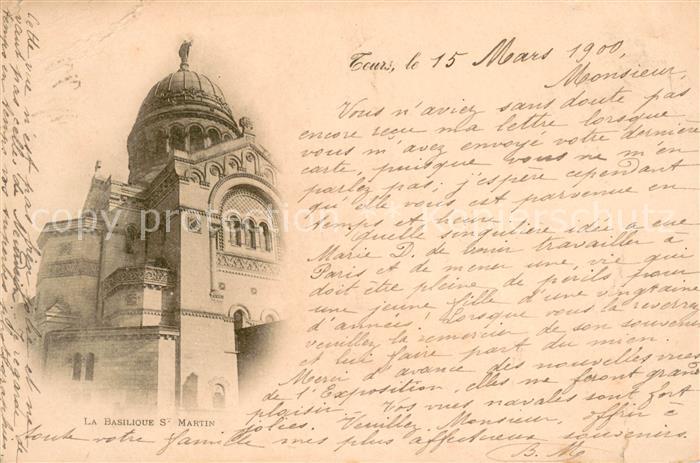 Tours, le 15 Mars 1900,
Monsieur,
Vous n'aviez sans doute pas
encore reçu ma lettre lorsque
vous m'avez envoyé votre dernière
carte, puisque vous ne m'en
parlez pas; j'espère cependant
qu'elle vous est parvenue en
temps et heure.
Quelle singulière idée a eue
Marie D. de venir travailler à
Paris et de mener une vie qui
doit être pleine de périls pour
une jeune fille d'une vingtaine
d'années! Lorsque vous la reverrez
veuillez la remercier de son souvenir
et lui faire part du mien.
Merci d'avance des nouvelles
de l'Exposition, elles me feront grand
plaisir. Vos vues navales sont fort
jolies. Veuillez, Monsieur, offrir à
toute votre famille mes plus affectueux souvenirs.
B. M.
LA BASILIQUE St MARTIN
Cette vue n'est pas
vaut pas celle de
temps en temps
copyright by Kolariusschutz